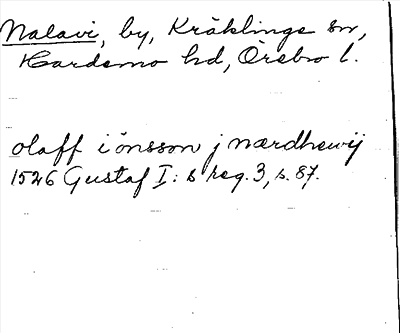 Nalavi, by, Kräklinge sn,
Hardemo hd, Örebro l.
olaff iönsson j nærdhewij
1526 Gustaf I:s reg. 3, s. 87.